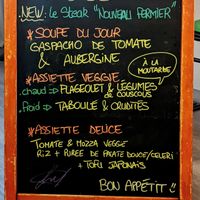 NEW: Le Steak "NOUVEAU FERMIER"
* SOUPE DU JOUR
GASPACHO DE TOMATE
& AUBERGINE
À LA
MOUTARDE
* ASSIETTE VEGGIE
chaud => FLAGEOLET & LÉGUMES
de COUSCOUS
froid => TABOULÉ & CRUDITÉS
* ASSIETTE DÉLICE
TOMATE & MOZZA VEGGIE
RIZ + PURÉE DE PATATE DOUCE/CÉLERI
+ TOFU JAPONAIS
BON APPÉTIT!